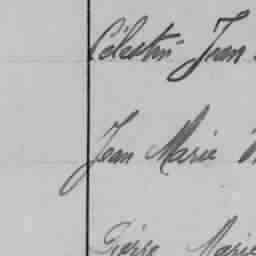 Célestin Jean
Jean Marie
Pierre Marie